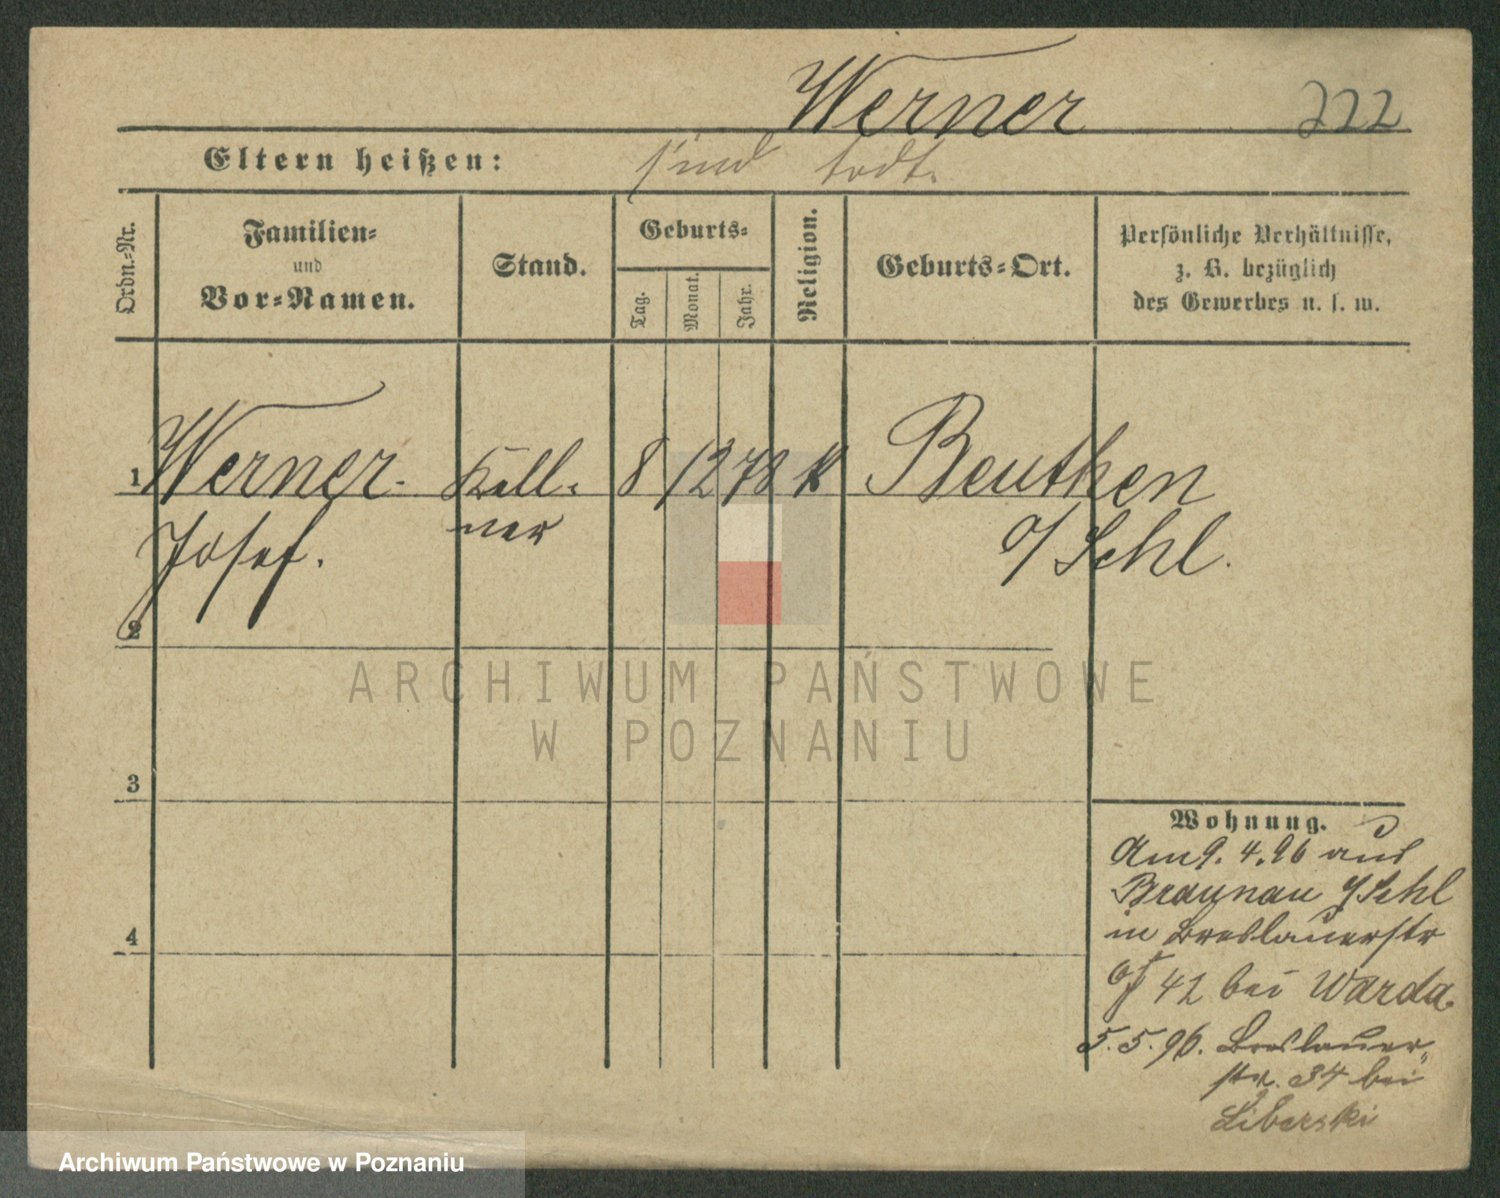 Werner 222
Eltern heißen: sind todt.
Ordn.-Nr.
Familien-
und
Vor-Namen.
Stand.
Geburts-
Tag.
Monat.
Jahr.
Religion.
Geburts-Ort.
Persönliche Verhältnisse,
z. B. bezüglich
des Gewerbes u. s. w.
1 Werner- Kell- 8 12 78 k Beuthen
Josef. ner o/Schl.
2
ARCHIWUM PAŃSTWOWE
W POZNANIU
3
Wohnung.
Am 9. 4. 96 aus
Braunau /Schl
in Breslauerstr
4
42 bei Warda.
5. 5. 96. Breslauer-
str. 34 bei
Liberski
Archiwum Państwowe w Poznaniu